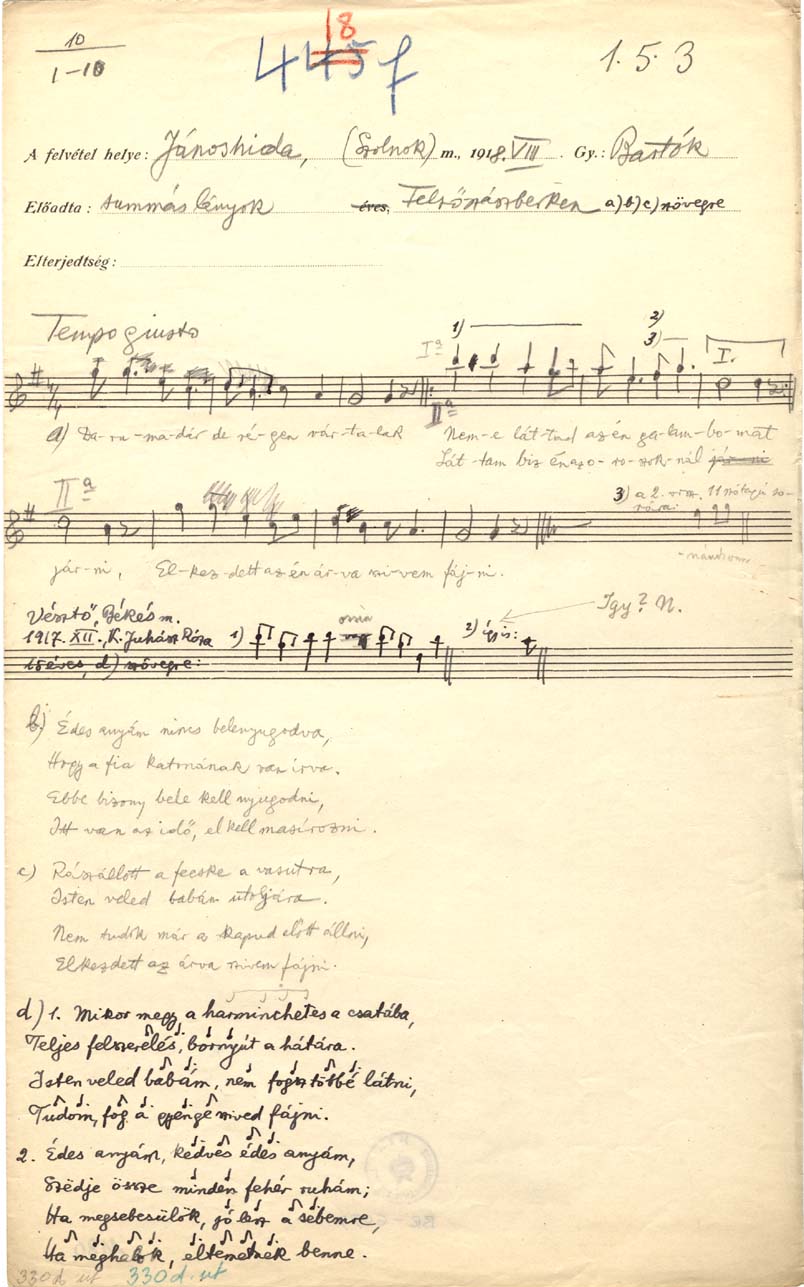 10
1-10
18
445 f
1. 5. 3
A felvétel helye: Jánoshida, (Szolnok) m., 1918. VIII. Gy.: Bartók
Előadta: summáslányok éves, Felsőszászberken a) b) c) szövegre
Elterjedtség:
Tempo giusto
Iª 1) 2) 3) I.
IIª
a) Da-ru-ma-dár de ré-gen vár-ta-lak Nem-e lát-tad az én ga-lam-bo-mat
Lát-tam biz én az o-ro-szok-nál já-r-ni
IIª
3) a 2. vsz. 11 szótagú so-
raira:
jár-ni, El-kez-dett az én ár-va szi-vem fáj-ni.
Vésztő, Békés m.
Igy? N.
1917. XII., K. Juhász Róza 1) 2) így is:
15 éves, d) szövegre:
b) Édes anyám nincs belenyugodva,
Hogy a fia katonának van írva.
Ebbe bizony bele kell nyugodni,
Itt van az idő, el kell masírozni.
c) Rászállott a fecske a vasutra,
Isten veled babám utoljára.
Nem tudok már a kapud előtt állni,
Elkezdett az árva szivem fájni.
d) 1. Mikor megy a harminchetes a csatába,
Teljes felszerelés, bornyút a hátára.
Isten veled babám, nem fogsz többé látni,
Tudom, fog a gyenge szived fájni.
2. Édes anyám, kedves édes anyám,
Szëdje össze minden fehér ruhám;
Ha megsebesülök, jó lesz a sebemre,
Ha meghalok, eltemetnek benne.
330 d. ut 330 d. ut